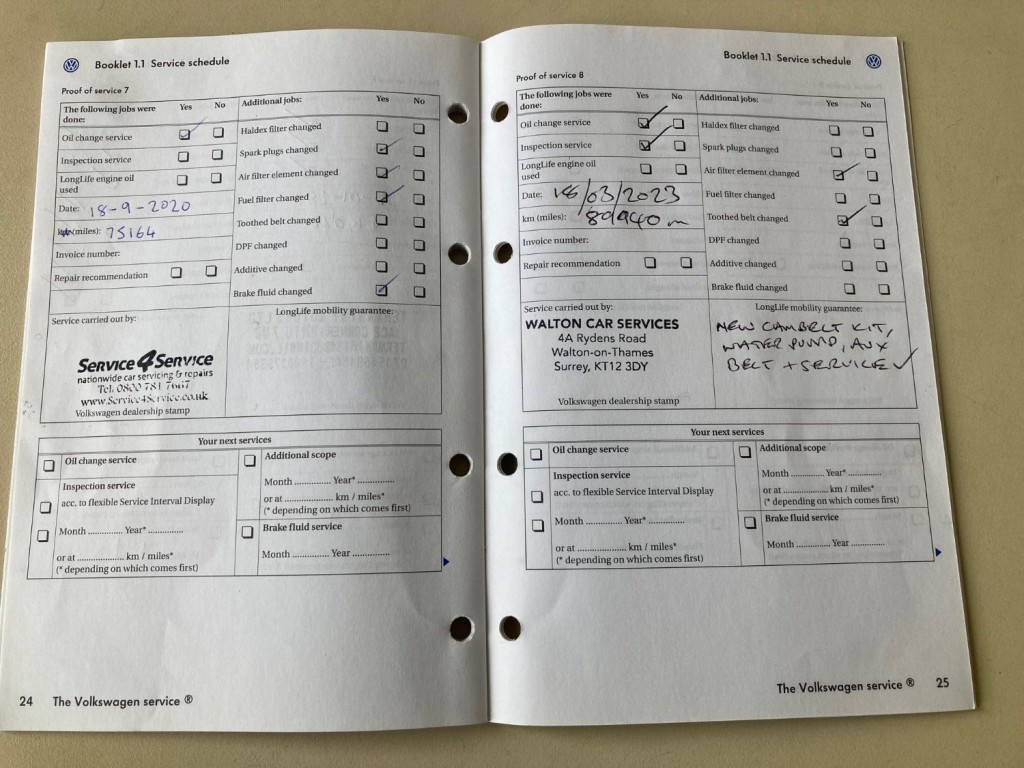 Booklet 1.1 Service schedule
Proof of service 7
The following jobs were done: Yes No
Oil change service
Inspection service
LongLife engine oil used
Date: 18-9-2020
km (miles): 75164
Invoice number:
Repair recommendation
Additional jobs: Yes No
Haldex filter changed
Spark plugs changed
Air filter element changed
Fuel filter changed
Toothed belt changed
DPF changed
Additive changed
Brake fluid changed
Service carried out by:
SERVICE4SERVICE
nationwide car servicing & repairs
Tel. 0800 781
www.Service4Service.co.uk
Volkswagen dealership stamp
LongLife mobility guarantee:
Your next services
Oil change service
Inspection service
acc. to flexible Service Interval Display
Month .............. Year* ..............
or at ..................... km / miles*
(* depending on which comes first)
Additional scope
Month .............. Year* ..............
or at ..................... km / miles*
(* depending on which comes first)
Brake fluid service
Month .............. Year ..............
24 The Volkswagen service ®
Booklet 1.1 Service schedule
Proof of service 8
The following jobs were done: Yes No
Oil change service
Inspection service
LongLife engine oil used
Date: 18/03/2023
km (miles): 80940 m
Invoice number:
Repair recommendation
Additional jobs: Yes No
Haldex filter changed
Spark plugs changed
Air filter element changed
Fuel filter changed
Toothed belt changed
DPF changed
Additive changed
Brake fluid changed
Service carried out by:
WALTON CAR SERVICES
4A Rydens Road
Walton-on-Thames
Surrey, KT12 3DY
Volkswagen dealership stamp
LongLife mobility guarantee:
NEW CAMBELT KIT,
WATER PUMP, AUX
BELT + SERVICE
Your next services
Oil change service
Inspection service
acc. to flexible Service Interval Display
Month .............. Year* ..............
or at ..................... km / miles*
(* depending on which comes first)
Additional scope
Month .............. Year* ..............
or at ..................... km / miles*
(* depending on which comes first)
Brake fluid service
Month .............. Year ..............
The Volkswagen service ® 25